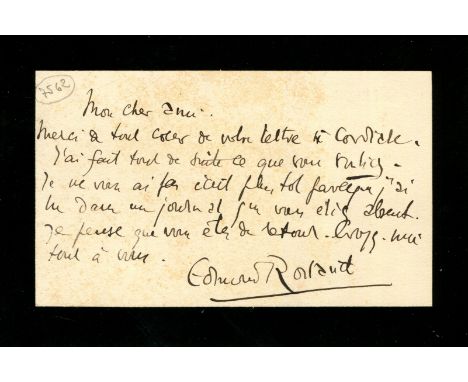 7562
Mon cher ami.
Merci de tout coeur de votre lettre si cordiale.
J'ai fait tout de suite ce que vous vouliez.
Je ne vous ai pas écrit plus tôt parce que j'ai
lu dans un journal que vous étiez absent.
Je pense que vous êtes de retour. Croyez-moi
tout à vous.
Edmond Rostand